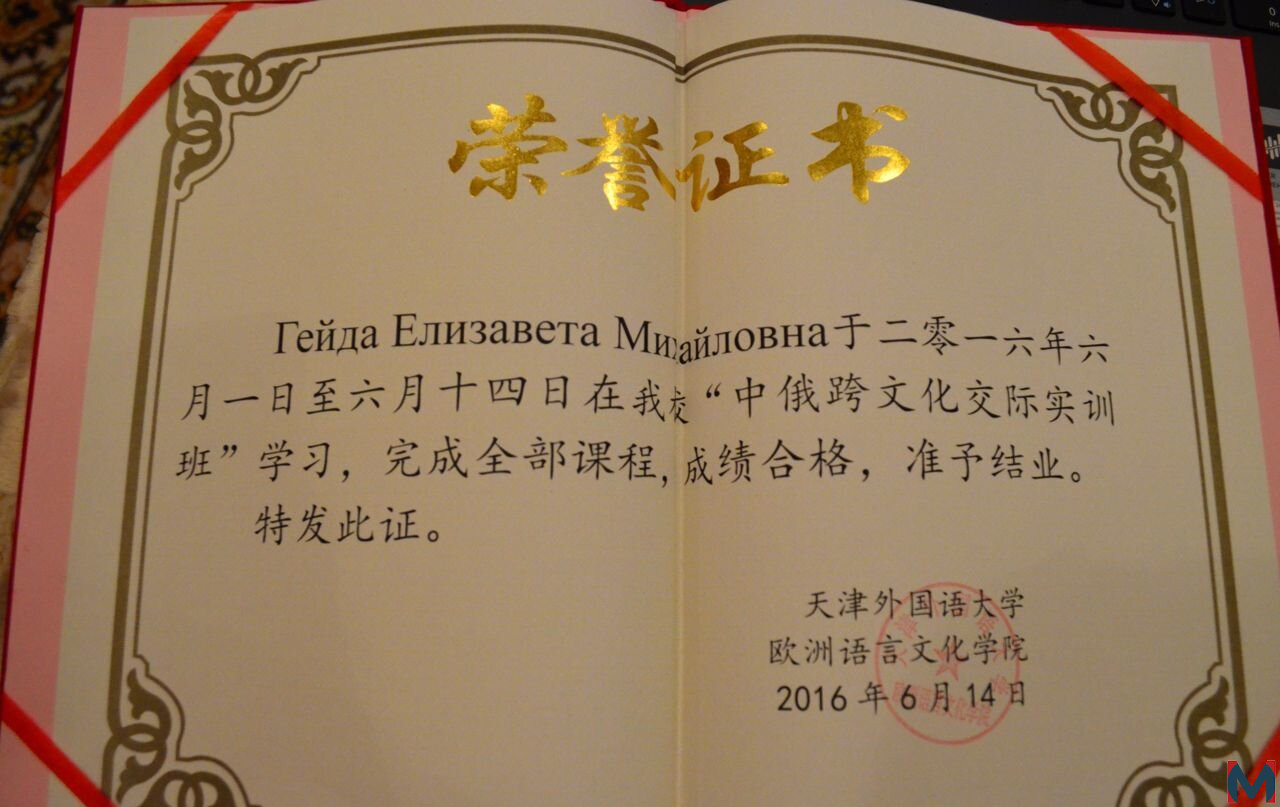 荣誉证书
Гейда Елизавета Михайловна于二零一六年六
月一日至六月十四日在我校“中俄跨文化交际实训
班”学习，完成全部课程，成绩合格，准予结业。
特发此证。
天津外国语大学
欧洲语言文化学院
2016年6月14日
M